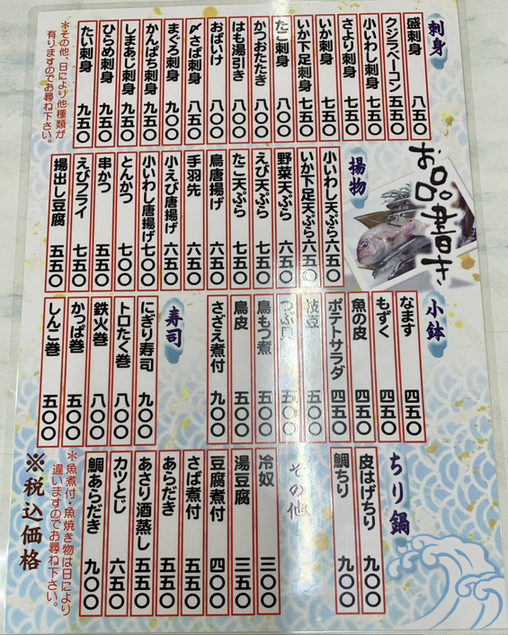 お品書き
刺身
盛刺身 八五〇
クジラベーコン 五五〇
小いわし刺身 七五〇
さより刺身 七五〇
いか刺身 七五〇
いか下足刺身 七五〇
たこ刺身 八〇〇
かつおたたき 八〇〇
はも湯引き 八〇〇
おばいけ 八〇〇
〆さば刺身 八五〇
まぐろ刺身 九〇〇
かんぱち刺身 九五〇
しまあじ刺身 九五〇
ひらめ刺身 九五〇
たい刺身 九五〇
＊その他、日により他種類が
有りますのでお尋ね下さい。
揚物
小いわし天ぷら 六五〇
いか下足天ぷら 六五〇
野菜天ぷら 六五〇
えび天ぷら 七五〇
たこ天ぷら 七五〇
鳥唐揚げ 六五〇
手羽先 六五〇
小えび唐揚げ 六五〇
小いわし唐揚げ 七〇〇
とんかつ 七〇〇
串かつ 五五〇
えびフライ 七五〇
揚出し豆腐 五五〇
小鉢
なます 四五〇
もずく 四五〇
魚の皮 四五〇
ポテトサラダ 四五〇
枝豆 五〇〇
つぶ貝 五〇〇
鳥もつ煮 五〇〇
鳥皮 五〇〇
さざえ煮付 九〇〇
寿司
にぎり寿司 九〇〇
トロたく巻 八〇〇
鉄火巻 八〇〇
かっぱ巻 五〇〇
しんこ巻 五〇〇
ちり鍋
皮はげちり 九〇〇
鯛ちり 九〇〇
その他
冷奴 三〇〇
湯豆腐 三五〇
豆腐煮付 四〇〇
さば煮付 五五〇
あらだき 五五〇
あさり酒蒸し 五五〇
カツとじ 六五〇
鯛あらだき 九〇〇
＊魚煮付・魚焼き物は日により
違いますのでお尋ね下さい。
※税込価格